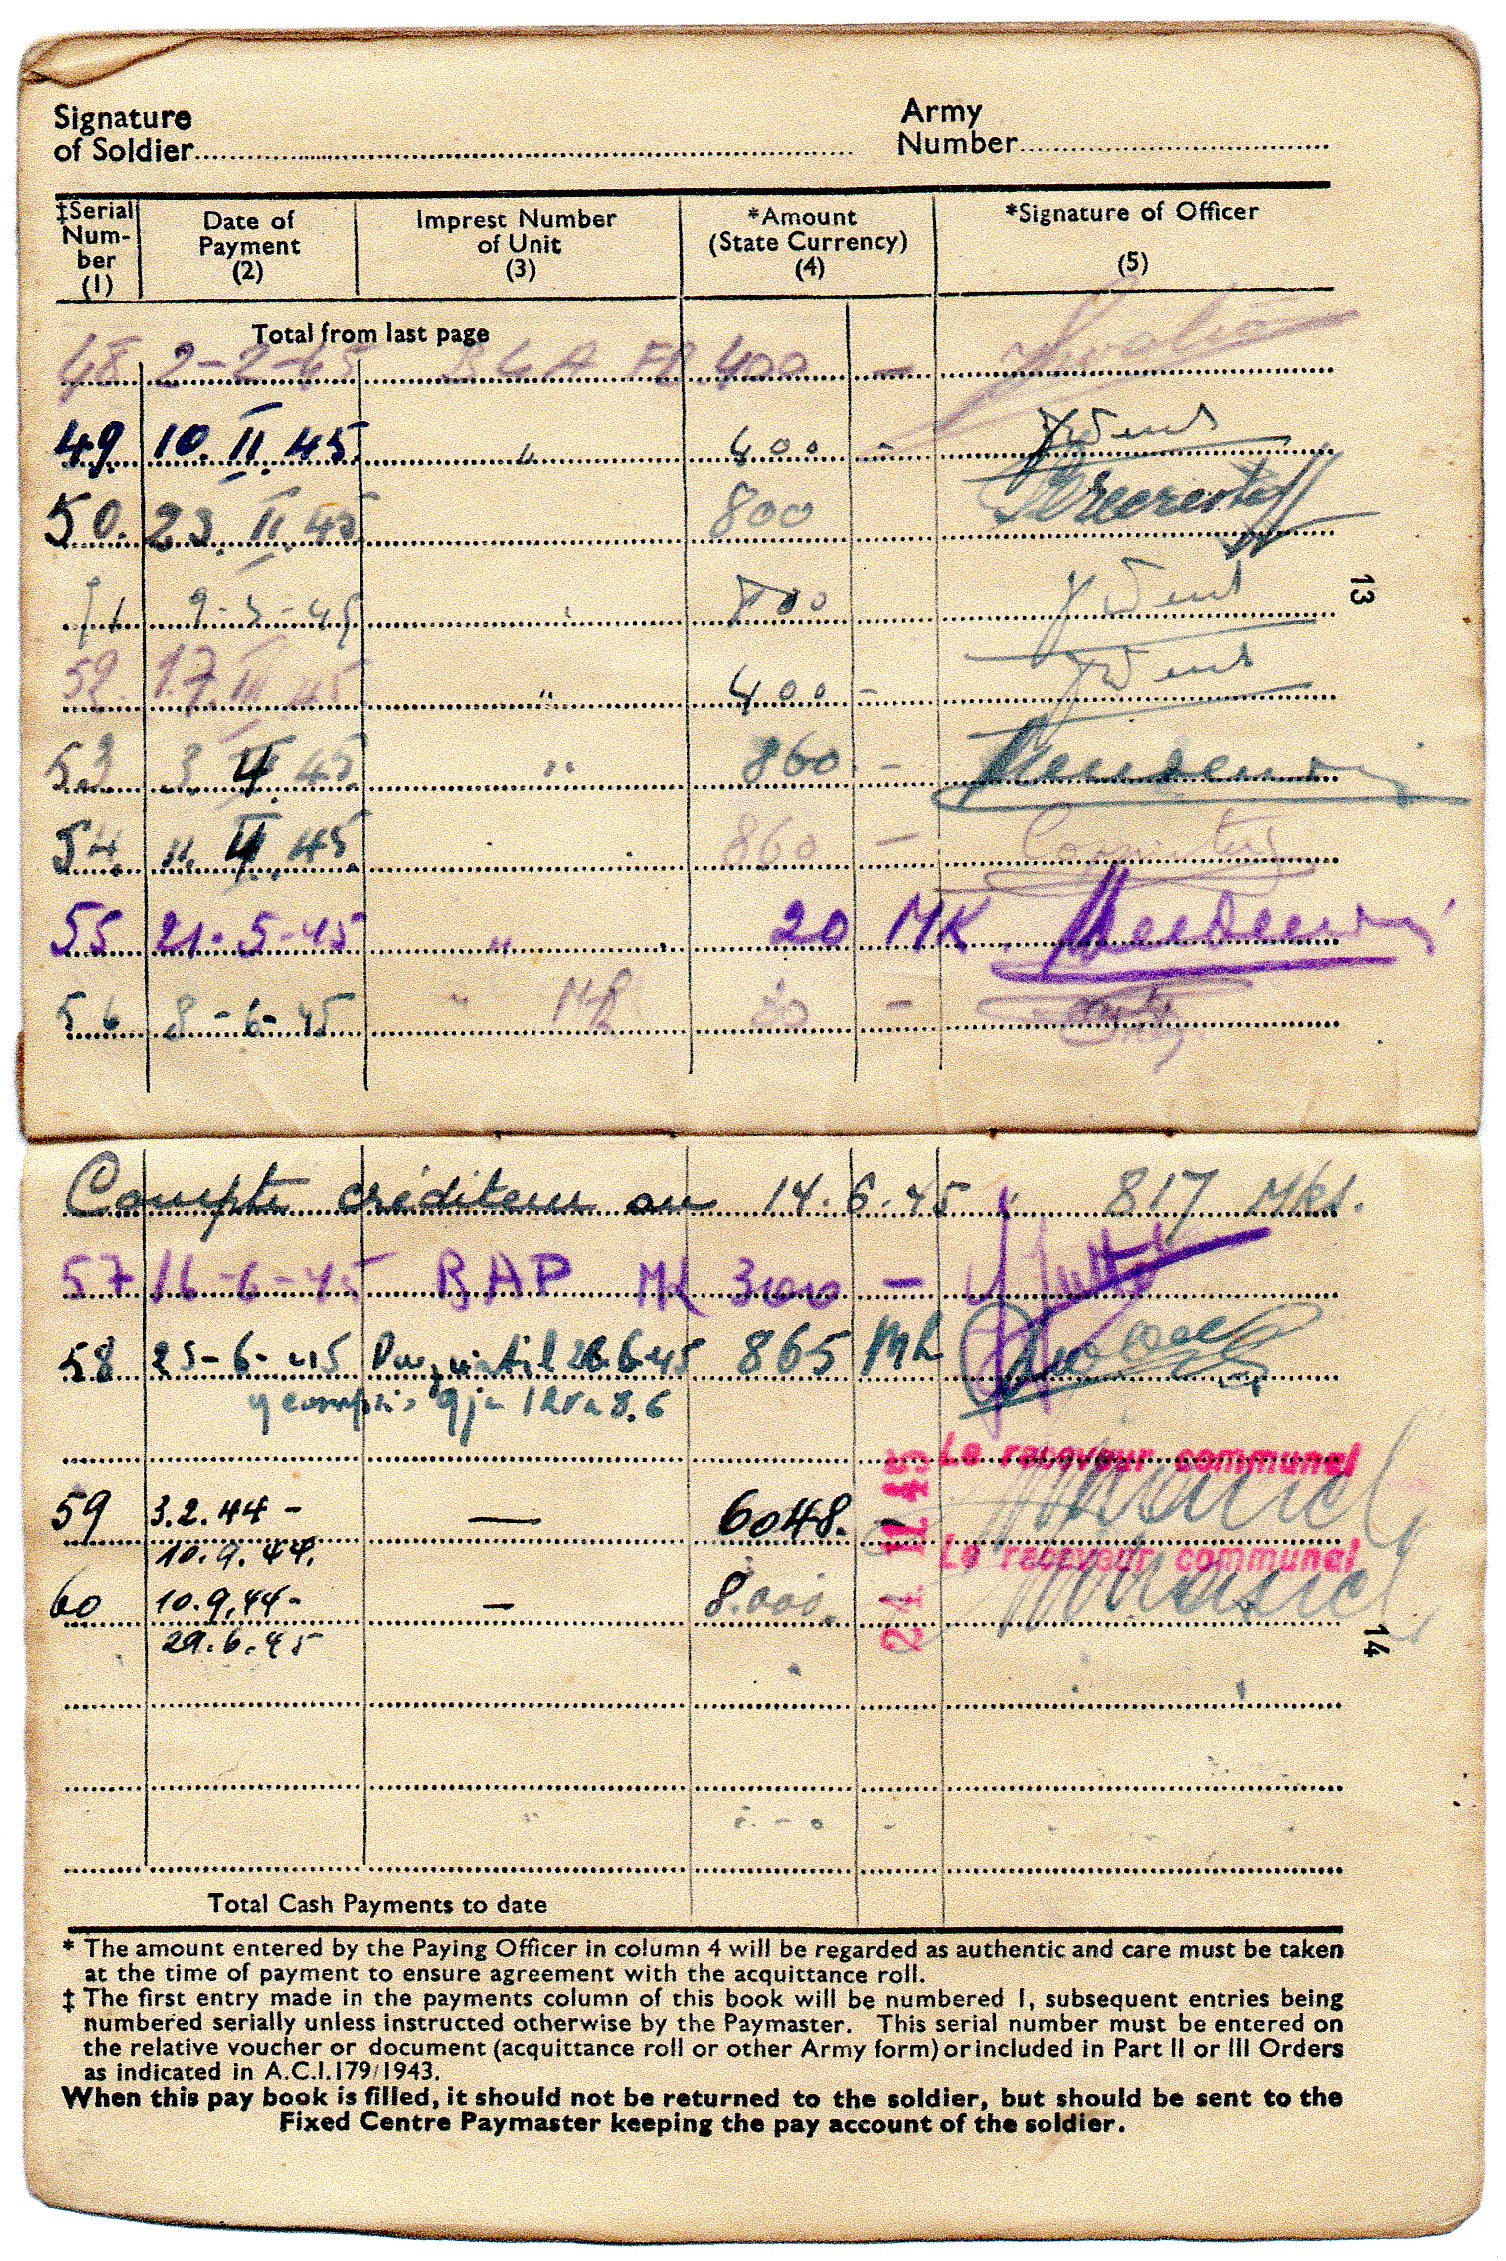 Signature
of Soldier
Army
Number
‡Serial Num-ber (1)
Date of Payment (2)
Imprest Number of Unit (3)
*Amount (State Currency) (4)
*Signature of Officer (5)
Total from last page
48 2-2-45 400 -
49. 10. II. 45. " 400 -
50. 23. II. 45 800
51 9-3-45 800
52. 17. III. 45 " 400 -
53 3 4 45 " 860. -
54. 11. 4. 45. 860 -
55 21-5-45 " 20 MK.
56 8-6-45 " Mk 20 -
13
Compte créditeur au 14.6.45 817 Mks.
57 16-6-45 BAP MK 300 -
58 25-6-45 until 26.6.45 865 Mk
y compris 9 ja 8.6
Le receveur communal
59 3.2.44 - — 6048.
10.9.44.
Le receveur communal
60 10.9.44 - — 8.000.
29.6.45
21 12 45
14
Total Cash Payments to date
* The amount entered by the Paying Officer in column 4 will be regarded as authentic and care must be taken
at the time of payment to ensure agreement with the acquittance roll.
‡ The first entry made in the payments column of this book will be numbered 1, subsequent entries being
numbered serially unless instructed otherwise by the Paymaster. This serial number must be entered on
the relative voucher or document (acquittance roll or other Army form) or included in Part II or III Orders
as indicated in A.C.I.179/1943.
When this pay book is filled, it should not be returned to the soldier, but should be sent to the
Fixed Centre Paymaster keeping the pay account of the soldier.